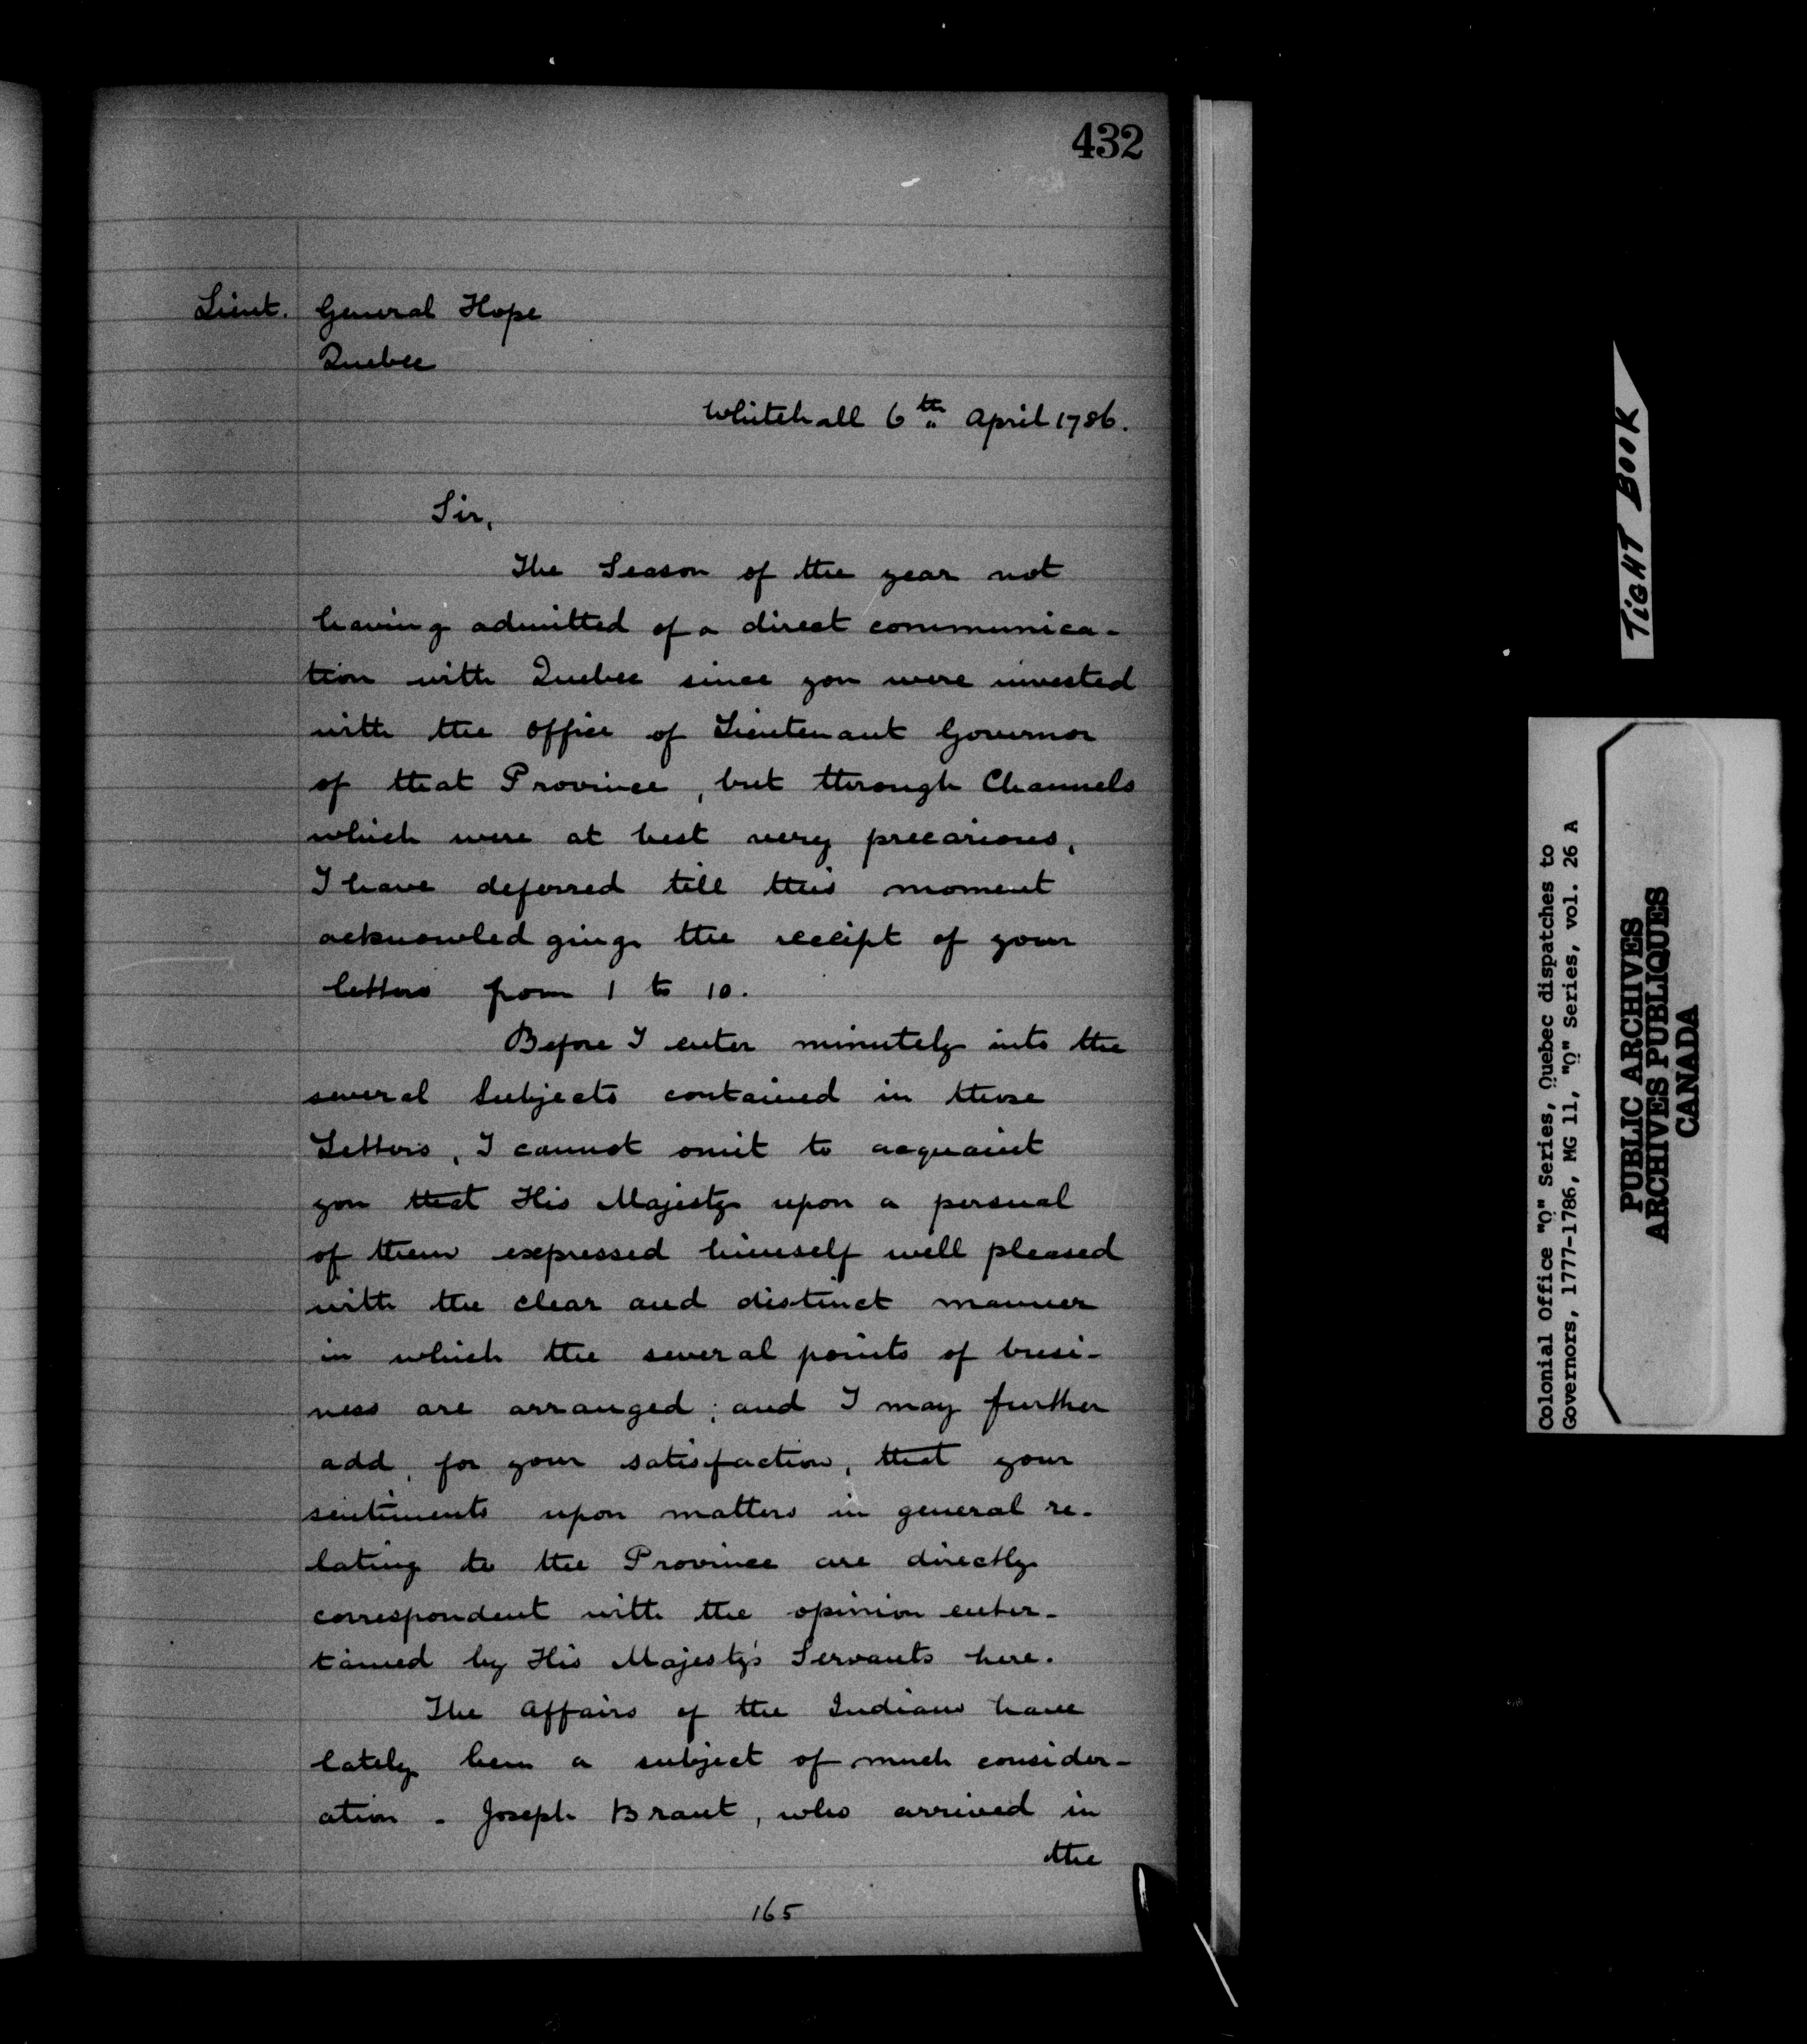 432
Lieut. General Hope
Quebec
Whitehall 6th April 1786.
Sir,
The Season of the year not
having admitted of a direct communica-
tion with Quebec since you were invested
with the Office of Lieutenant Governor
of that Province, but through Channels
which were at best very precarious,
I have deferred till this moment
acknowledging the receipt of your
letters from 1 to 10.
Before I enter minutely into the
several Subjects contained in those
Letters, I cannot omit to acquaint
you that His Majesty upon a perusal
of them expressed himself well pleased
with the clear and distinct manner
in which the several points of busi-
ness are arranged; and I may further
add, for your satisfaction, that your
sentiments upon matters in general re-
lating to the Province are directly
correspondent with the opinion enter-
tained by His Majesty's Servants here.
The Affairs of the Indians have
lately been a subject of much consider-
ation - Joseph Brant, who arrived in
the
165
TIGHT BOOK
Colonial Office "Q" Series, Quebec dispatches to
Governors, 1777-1786, MG 11, "Q" Series, vol. 26 A
PUBLIC ARCHIVES
ARCHIVES PUBLIQUES
CANADA